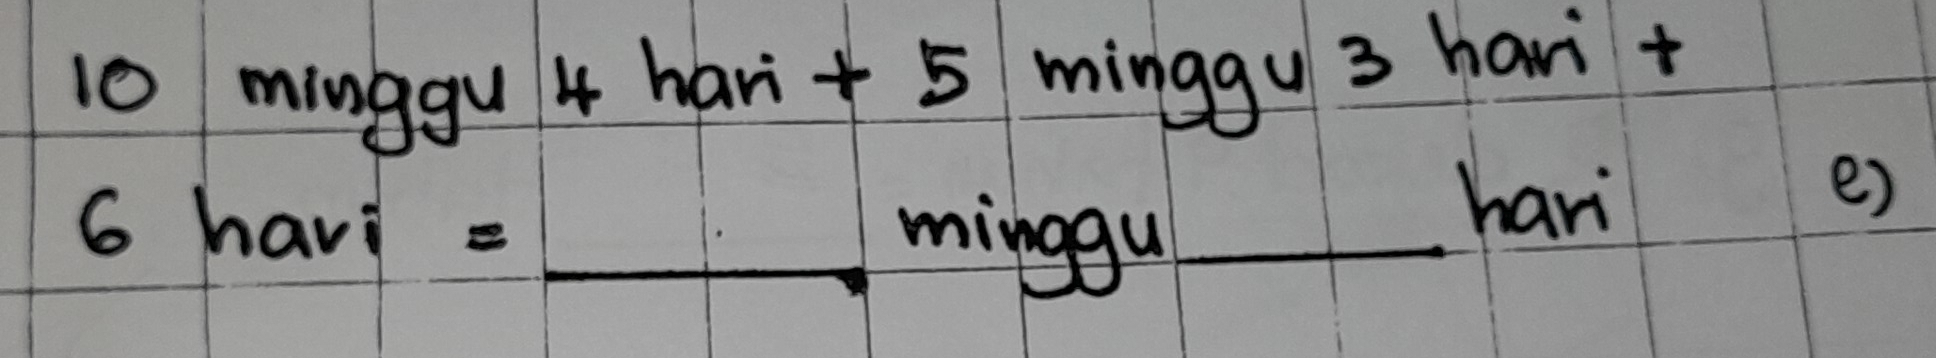 10 minggu 4 hari + 5 minggu 3 hari +
6 hari = ______ minggu ______ hari e)